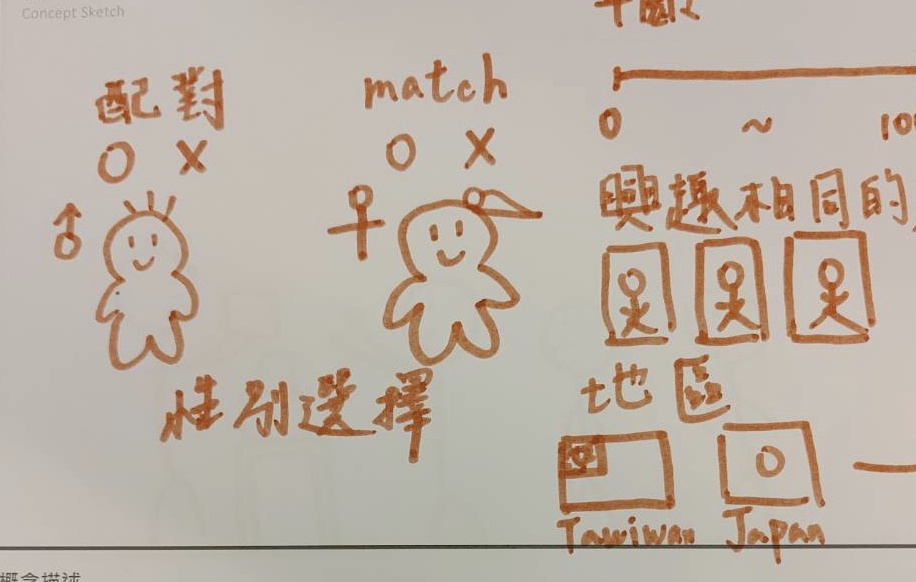 Concept Sketch
配對
match
O X
O X
性別選擇
0 ~ 100
興趣相同的
地區
Tawiwan Japan
概念描述